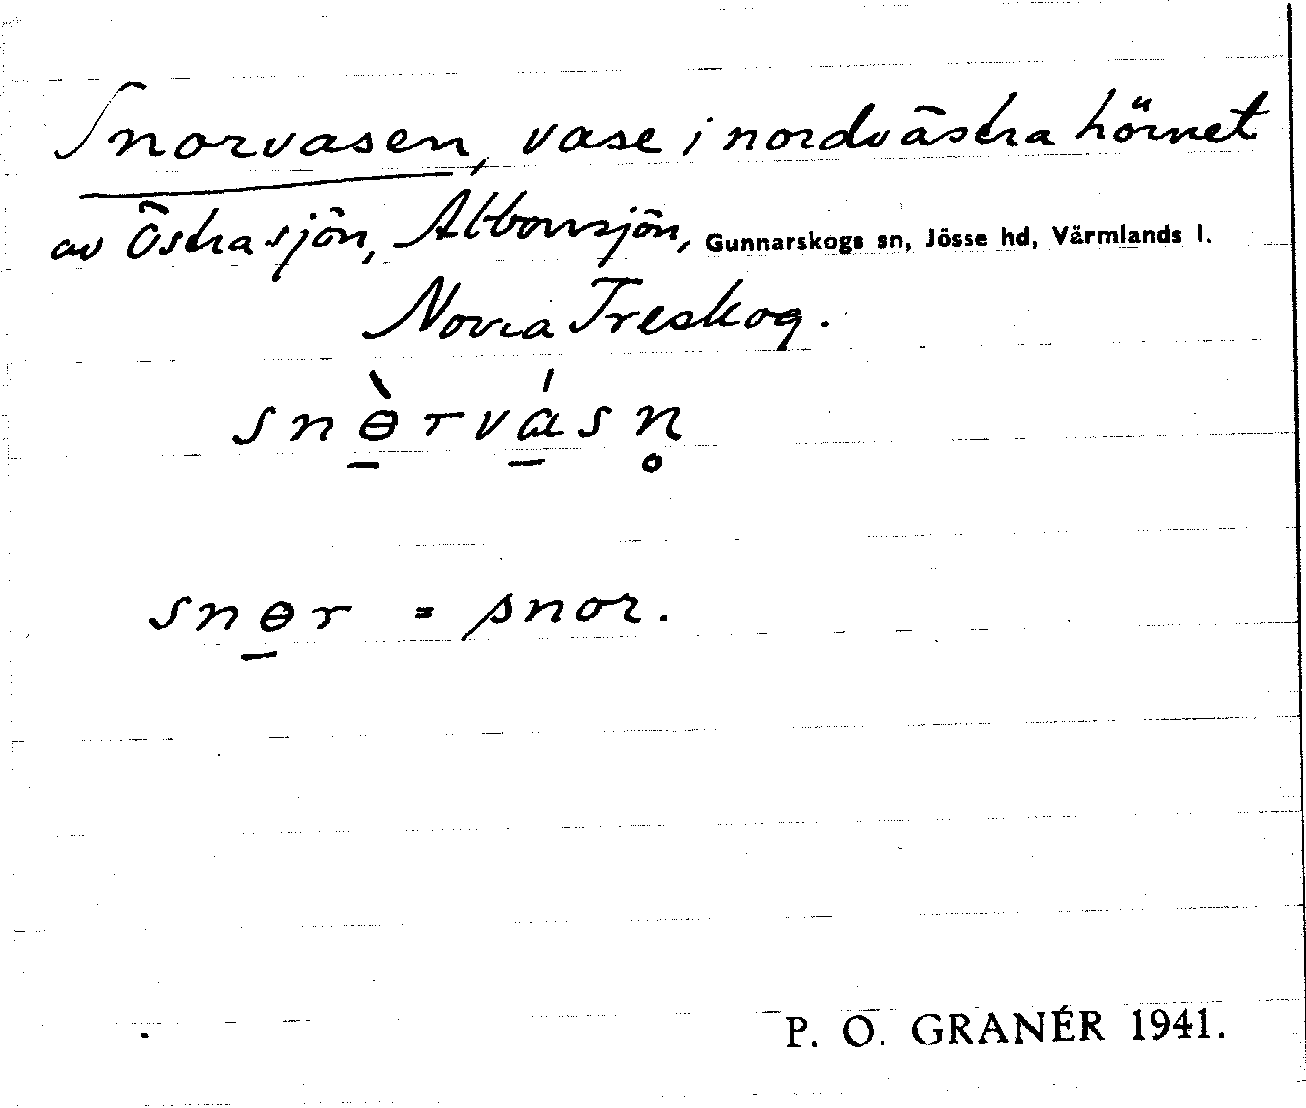 Snorvasen, vase i nordvästra hörnet
av Östra sjön, Gunnarskogs sn, Jösse hd, Värmlands l.
Norra Treskog.
snɵ̠̀rvá̠sn̥
snɵ̠r = snor.
P. O. GRANÉR 1941.